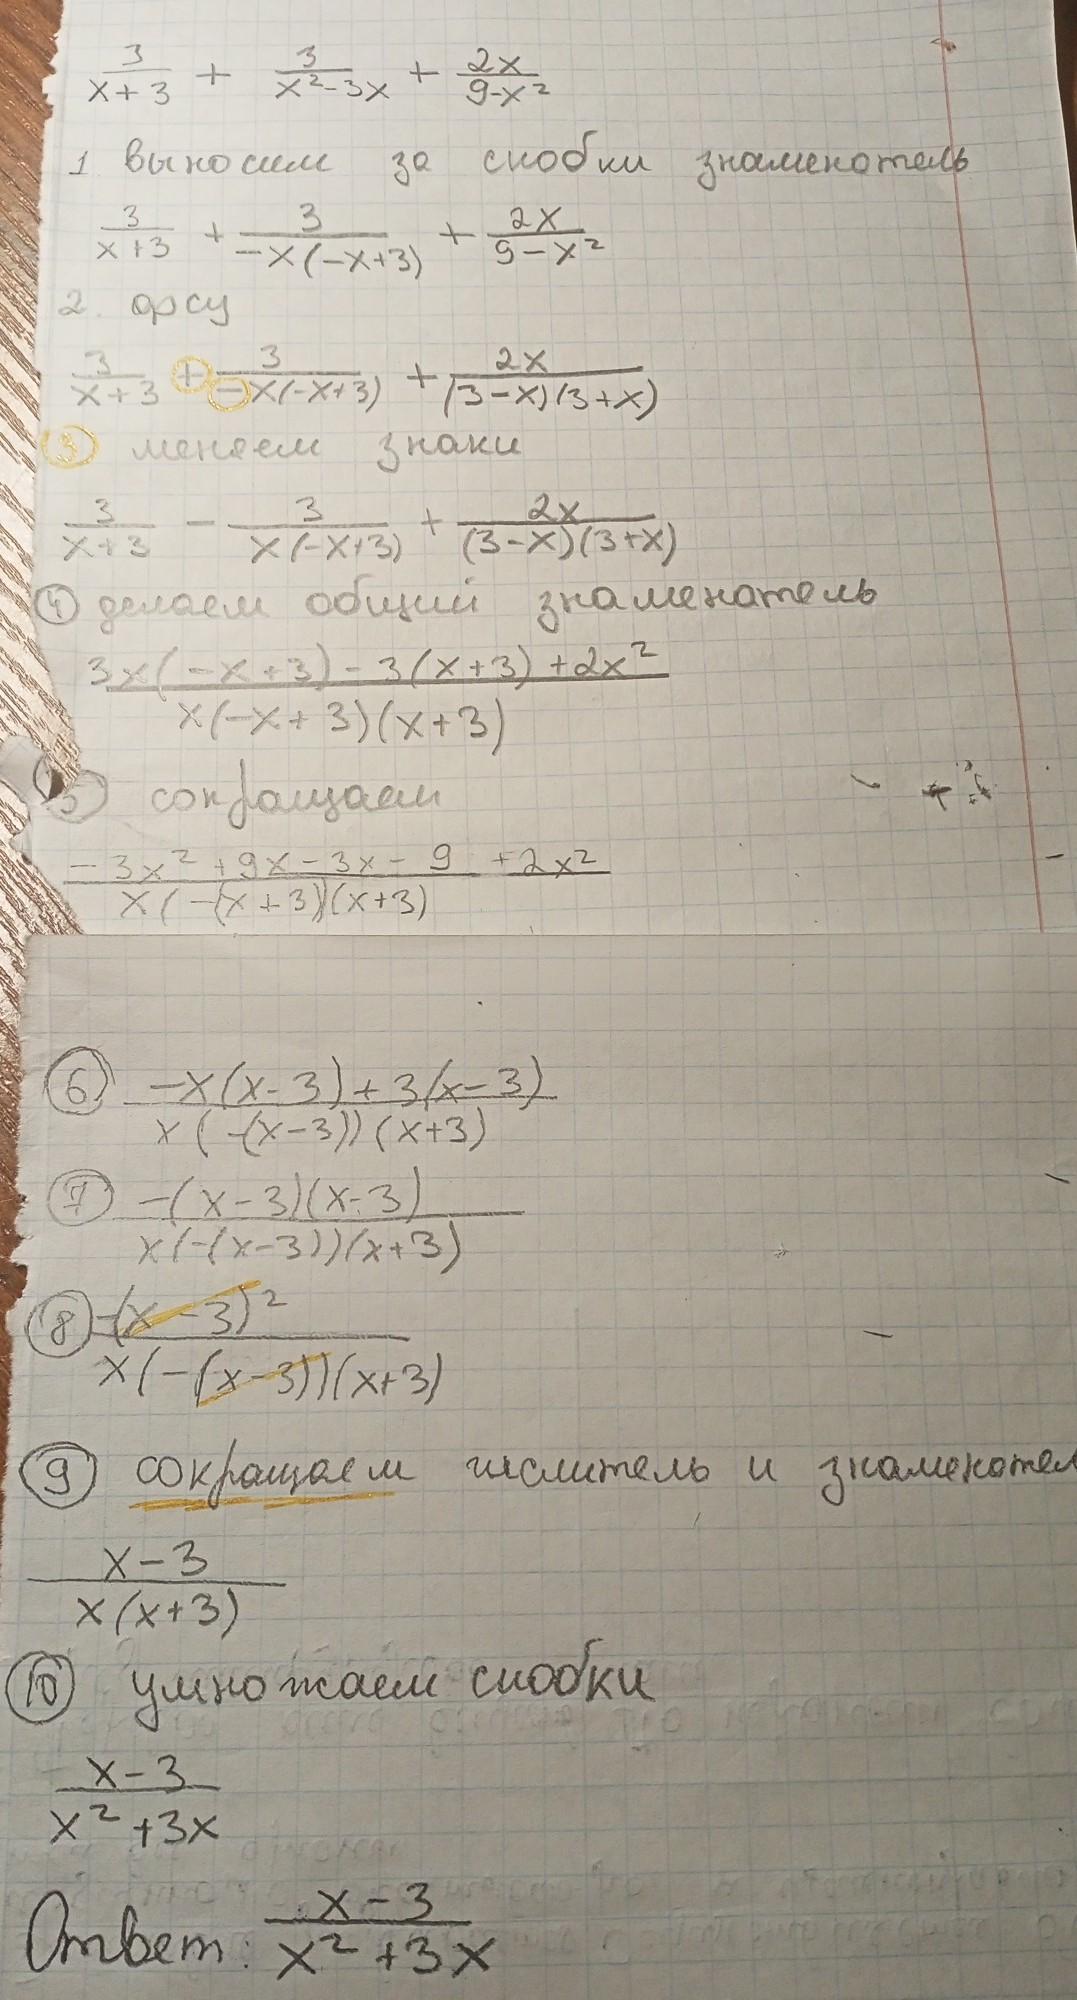 3/(x+3) + 3/(x²-3x) + 2x/(9-x²)
1 выносим за скобки знаменотель
3/(x+3) + 3/(-x(-x+3)) + 2x/(9-x²)
2. фсу
3/(x+3) + 3/(-x(-x+3)) + 2x/((3-x)(3+x))
3 меняем знаки
3/(x+3) - 3/(x(-x+3)) + 2x/((3-x)(3+x))
4 делаем общий знаменатель
(3x(-x+3)-3(x+3)+2x²)/(x(-x+3)(x+3))
5 сокращаем
(-3x²+9x-3x-9+2x²)/(x(-(x+3))(x+3))
6 (-x(x-3)+3(x-3))/(x(-(x-3))(x+3))
7 (-(x-3)(x-3))/(x(-(x-3))(x+3))
8 (-(x-3)²)/(x(-(x-3))(x+3))
9 сокращаем числитель и знаменател
(x-3)/(x(x+3))
10 умножаем скобки
(x-3)/(x²+3x)
Ответ: (x-3)/(x²+3x)